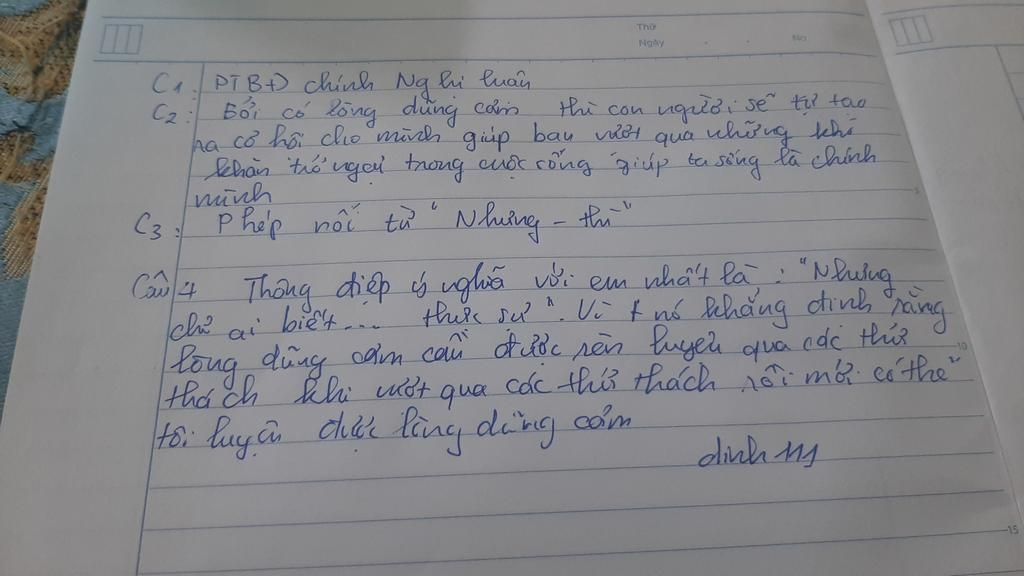 Thứ
Ngày No
C1: PTBĐ chính Nghị luận
C2: Bởi có lòng dũng cảm thì con người sẽ tự tạo
ra cơ hội cho mình giúp bạn vượt qua những khó
khăn trở ngại trong cuộc sống giúp ta sống là chính
mình
C3: Phép nối từ "Nhưng - thì"
Câu 4 Thông điệp ý nghĩa với em nhất là: "Nhưng
chỉ ai biết... thực sự". Vì nó khẳng định rằng
lòng dũng cảm cần được rèn luyện qua các thử
10
thách khi vượt qua các thử thách rồi mới có thể
tôi luyện được lòng dũng cảm
15